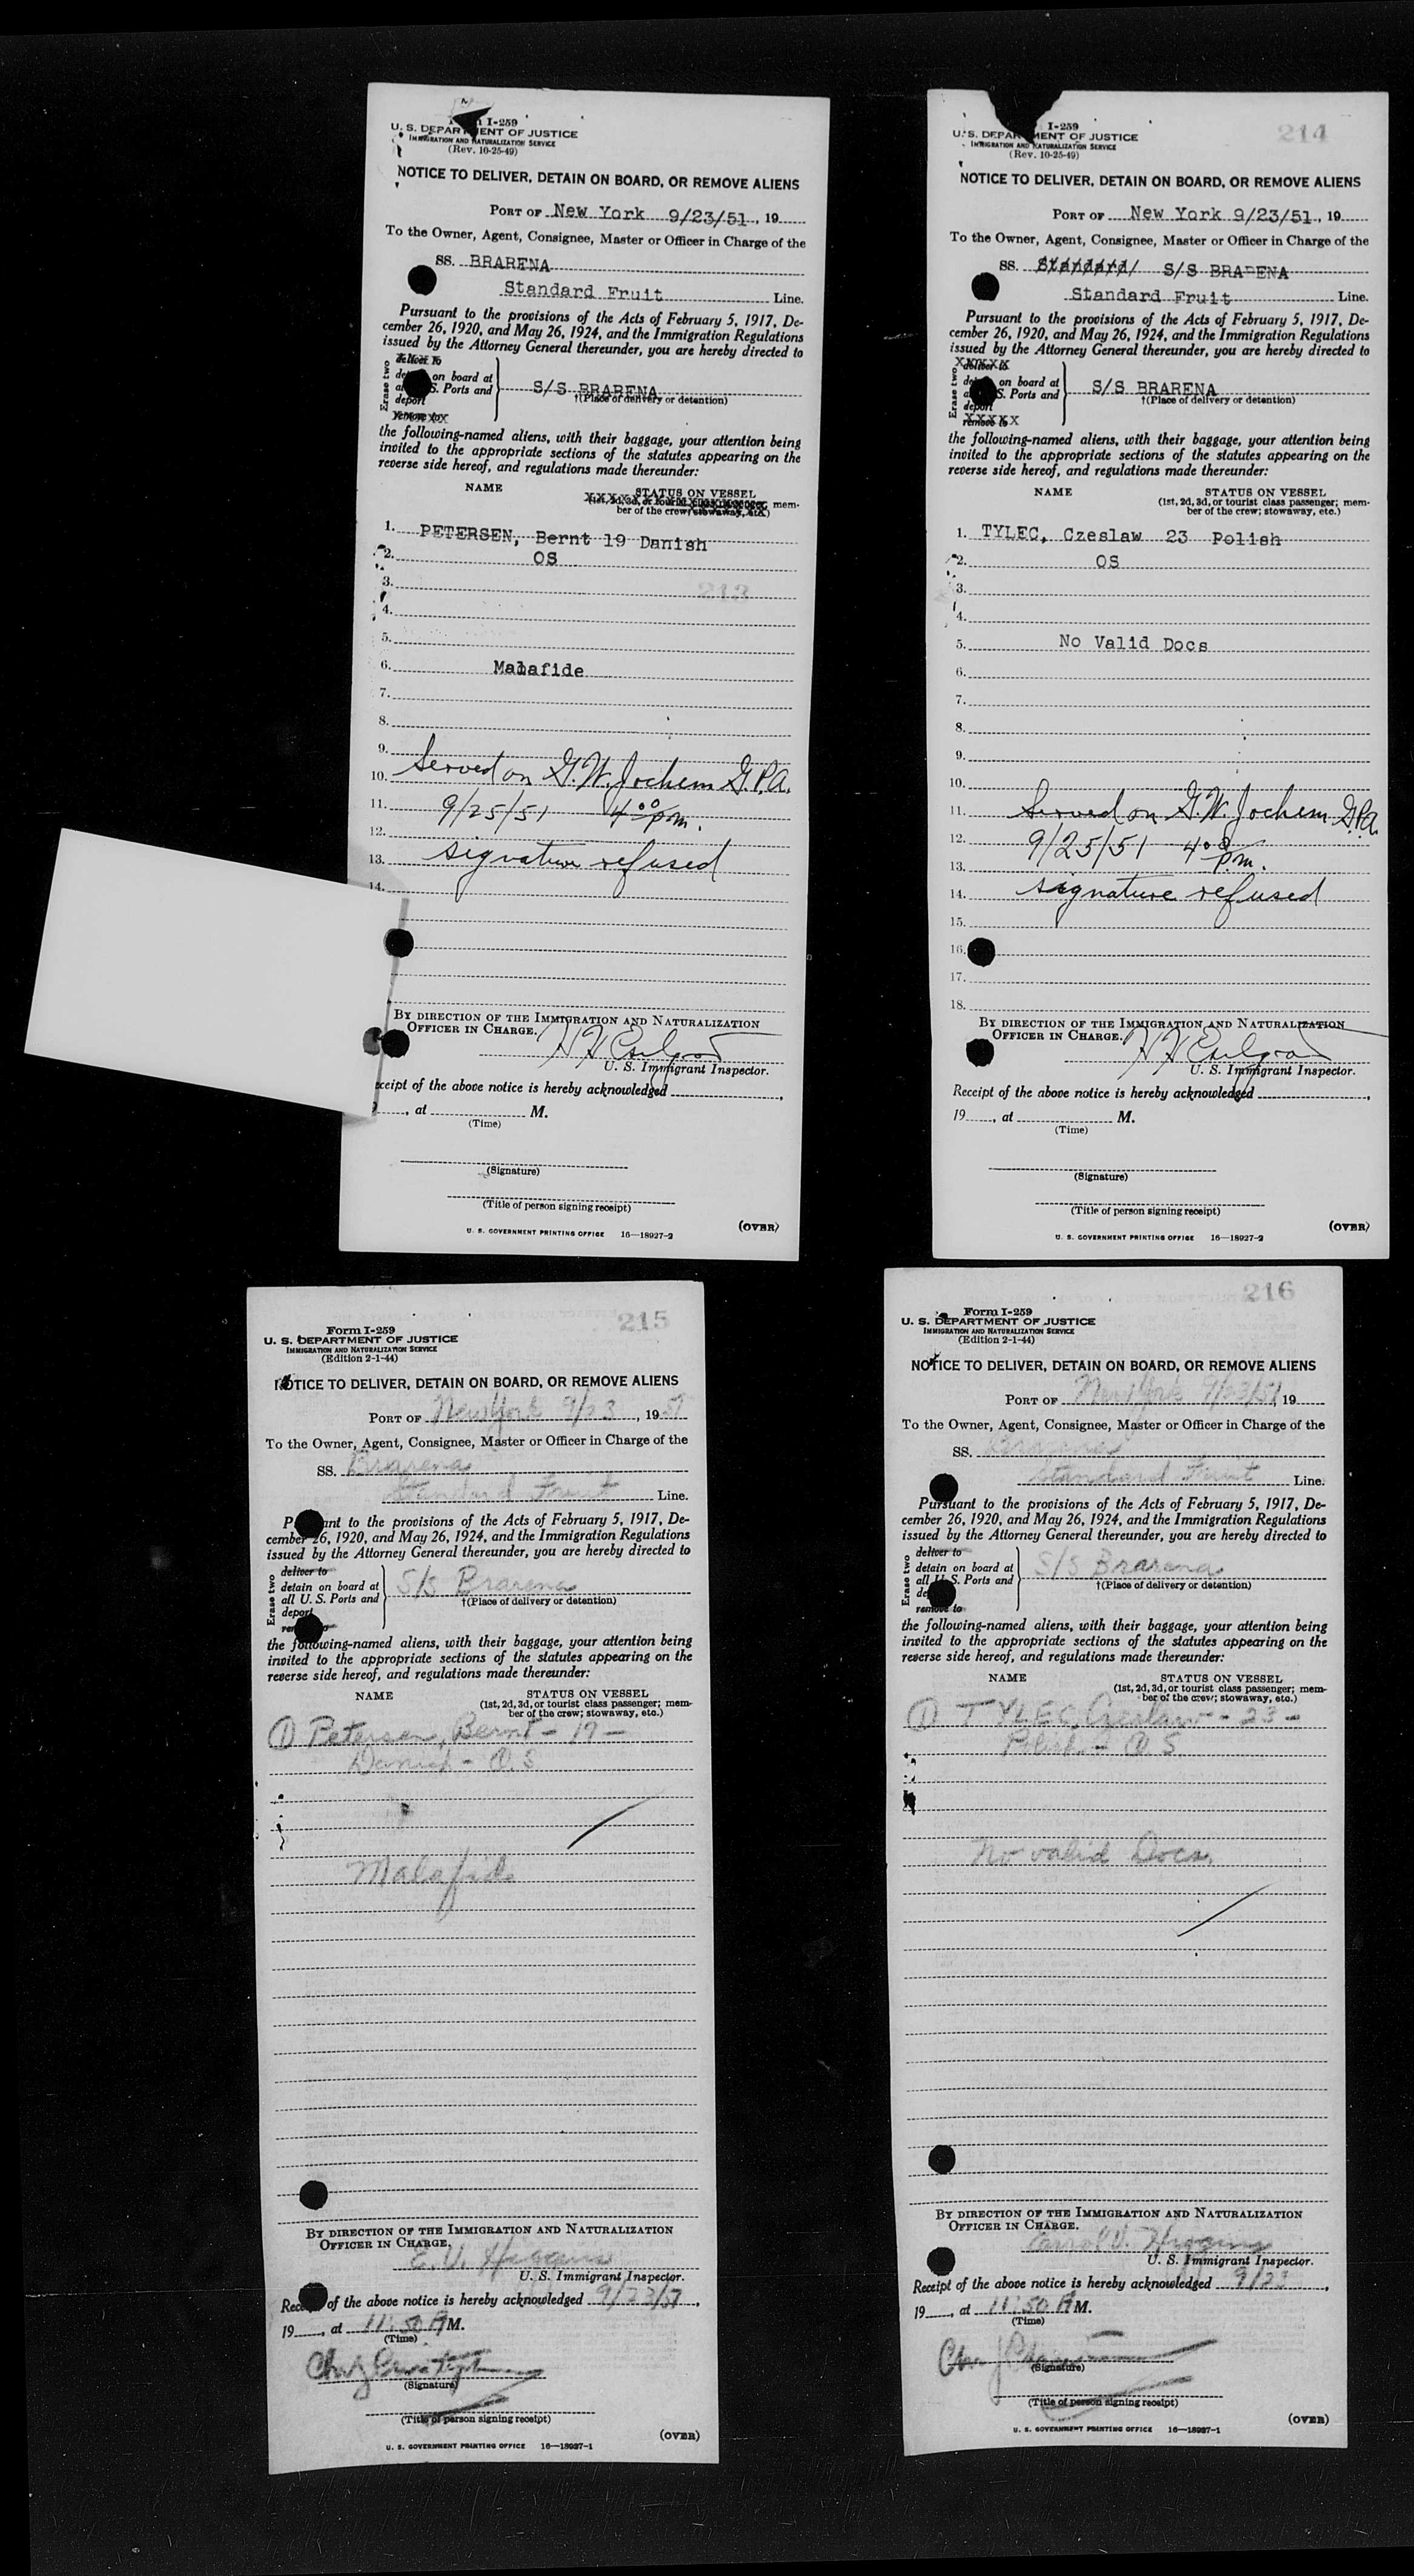 Form I-259
U. S. DEPARTMENT OF JUSTICE
IMMIGRATION AND NATURALIZATION SERVICE
(Rev. 10-25-49)
NOTICE TO DELIVER, DETAIN ON BOARD, OR REMOVE ALIENS
PORT OF New York 9/23/51, 19
To the Owner, Agent, Consignee, Master or Officer in Charge of the
SS. BRARENA
Standard Fruit Line.
Pursuant to the provisions of the Acts of February 5, 1917, De-
cember 26, 1920, and May 26, 1924, and the Immigration Regulations
issued by the Attorney General thereunder, you are hereby directed to
Erase two
deliver to
on board at
S. Ports and
S/S BRARENA
deport
†(Place of delivery or detention)
remove to
the following-named aliens, with their baggage, your attention being
invited to the appropriate sections of the statutes appearing on the
reverse side hereof, and regulations made thereunder:
NAME STATUS ON VESSEL
(1st, 2d, 3d, or tourist class passenger; mem-
ber of the crew; stowaway, etc.)
1. PETERSEN, Bernt 19 Danish
2. OS
3. 213
4.
5.
6. Malafide
7.
8.
9.
10. Served on G.W. Jochem G.P.A.
11. 9/25/51 4°° pm.
12.
13. signature refused
14.
BY DIRECTION OF THE IMMIGRATION AND NATURALIZATION
OFFICER IN CHARGE.
U. S. Immigrant Inspector.
Receipt of the above notice is hereby acknowledged
, at M.
(Time)
(Signature)
(Title of person signing receipt)
(OVER)
U. S. GOVERNMENT PRINTING OFFICE 16—18927-2
I-259
214
U. S. DEPARTMENT OF JUSTICE
IMMIGRATION AND NATURALIZATION SERVICE
(Rev. 10-25-49)
NOTICE TO DELIVER, DETAIN ON BOARD, OR REMOVE ALIENS
PORT OF New York 9/23/51, 19
To the Owner, Agent, Consignee, Master or Officer in Charge of the
SS. Standard/ S/S BRARENA
Standard Fruit Line.
Pursuant to the provisions of the Acts of February 5, 1917, De-
cember 26, 1920, and May 26, 1924, and the Immigration Regulations
issued by the Attorney General thereunder, you are hereby directed to
XXXXX
Erase two
deliver to
on board at
S. Ports and
S/S BRARENA
deport
†(Place of delivery or detention)
remove to
the following-named aliens, with their baggage, your attention being
invited to the appropriate sections of the statutes appearing on the
reverse side hereof, and regulations made thereunder:
NAME STATUS ON VESSEL
(1st, 2d, 3d, or tourist class passenger; mem-
ber of the crew; stowaway, etc.)
1. TYLEC, Czeslaw 23 Polish
2. OS
3.
4.
5. No Valid Docs
6.
7.
8.
9.
10.
11. Served on G.W. Jochem G.P.A.
12. 9/25/51 4°° p.m.
13.
14. signature refused
15.
16.
17.
18.
BY DIRECTION OF THE IMMIGRATION AND NATURALIZATION
OFFICER IN CHARGE.
U. S. Immigrant Inspector.
Receipt of the above notice is hereby acknowledged
19, at M.
(Time)
(Signature)
(Title of person signing receipt)
(OVER)
U. S. GOVERNMENT PRINTING OFFICE 16—18927-2
215
Form I-259
U. S. DEPARTMENT OF JUSTICE
IMMIGRATION AND NATURALIZATION SERVICE
(Edition 2-1-44)
NOTICE TO DELIVER, DETAIN ON BOARD, OR REMOVE ALIENS
PORT OF New York 9/23, 1951
To the Owner, Agent, Consignee, Master or Officer in Charge of the
SS. Brarena
Standard Fruit Line.
Pursuant to the provisions of the Acts of February 5, 1917, De-
cember 26, 1920, and May 26, 1924, and the Immigration Regulations
issued by the Attorney General thereunder, you are hereby directed to
Erase two
deliver to
detain on board at
all U. S. Ports and
S/S Brarena
deport
†(Place of delivery or detention)
remove to
the following-named aliens, with their baggage, your attention being
invited to the appropriate sections of the statutes appearing on the
reverse side hereof, and regulations made thereunder:
NAME STATUS ON VESSEL
(1st, 2d, 3d, or tourist class passenger; mem-
ber of the crew; stowaway, etc.)
① Petersen, Bernt - 19 -
Danish - O.S
Malafide
BY DIRECTION OF THE IMMIGRATION AND NATURALIZATION
OFFICER IN CHARGE.
E. V. Higgins
U. S. Immigrant Inspector.
Receipt of the above notice is hereby acknowledged 9/23/51,
19, at 11:50 A M.
(Time)
(Signature)
(Title of person signing receipt)
(OVER)
U. S. GOVERNMENT PRINTING OFFICE 16—18927-1
216
Form I-259
U. S. DEPARTMENT OF JUSTICE
IMMIGRATION AND NATURALIZATION SERVICE
(Edition 2-1-44)
NOTICE TO DELIVER, DETAIN ON BOARD, OR REMOVE ALIENS
PORT OF New York 9/23/51, 19
To the Owner, Agent, Consignee, Master or Officer in Charge of the
SS. Brarena
Standard Fruit Line.
Pursuant to the provisions of the Acts of February 5, 1917, De-
cember 26, 1920, and May 26, 1924, and the Immigration Regulations
issued by the Attorney General thereunder, you are hereby directed to
Erase two
deliver to
detain on board at
all U. S. Ports and
S/S Brarena
†(Place of delivery or detention)
remove to
the following-named aliens, with their baggage, your attention being
invited to the appropriate sections of the statutes appearing on the
reverse side hereof, and regulations made thereunder:
NAME STATUS ON VESSEL
(1st, 2d, 3d, or tourist class passenger; mem-
ber of the crew; stowaway, etc.)
① TYLEC, Czeslaw - 23 -
Polish - O S
No valid Docs.
BY DIRECTION OF THE IMMIGRATION AND NATURALIZATION
OFFICER IN CHARGE.
Carrol V. Higgins
U. S. Immigrant Inspector.
Receipt of the above notice is hereby acknowledged 9/23,
19, at 11:50 A M.
(Time)
(Signature)
(Title of person signing receipt)
(OVER)
U. S. GOVERNMENT PRINTING OFFICE 16—18927-1